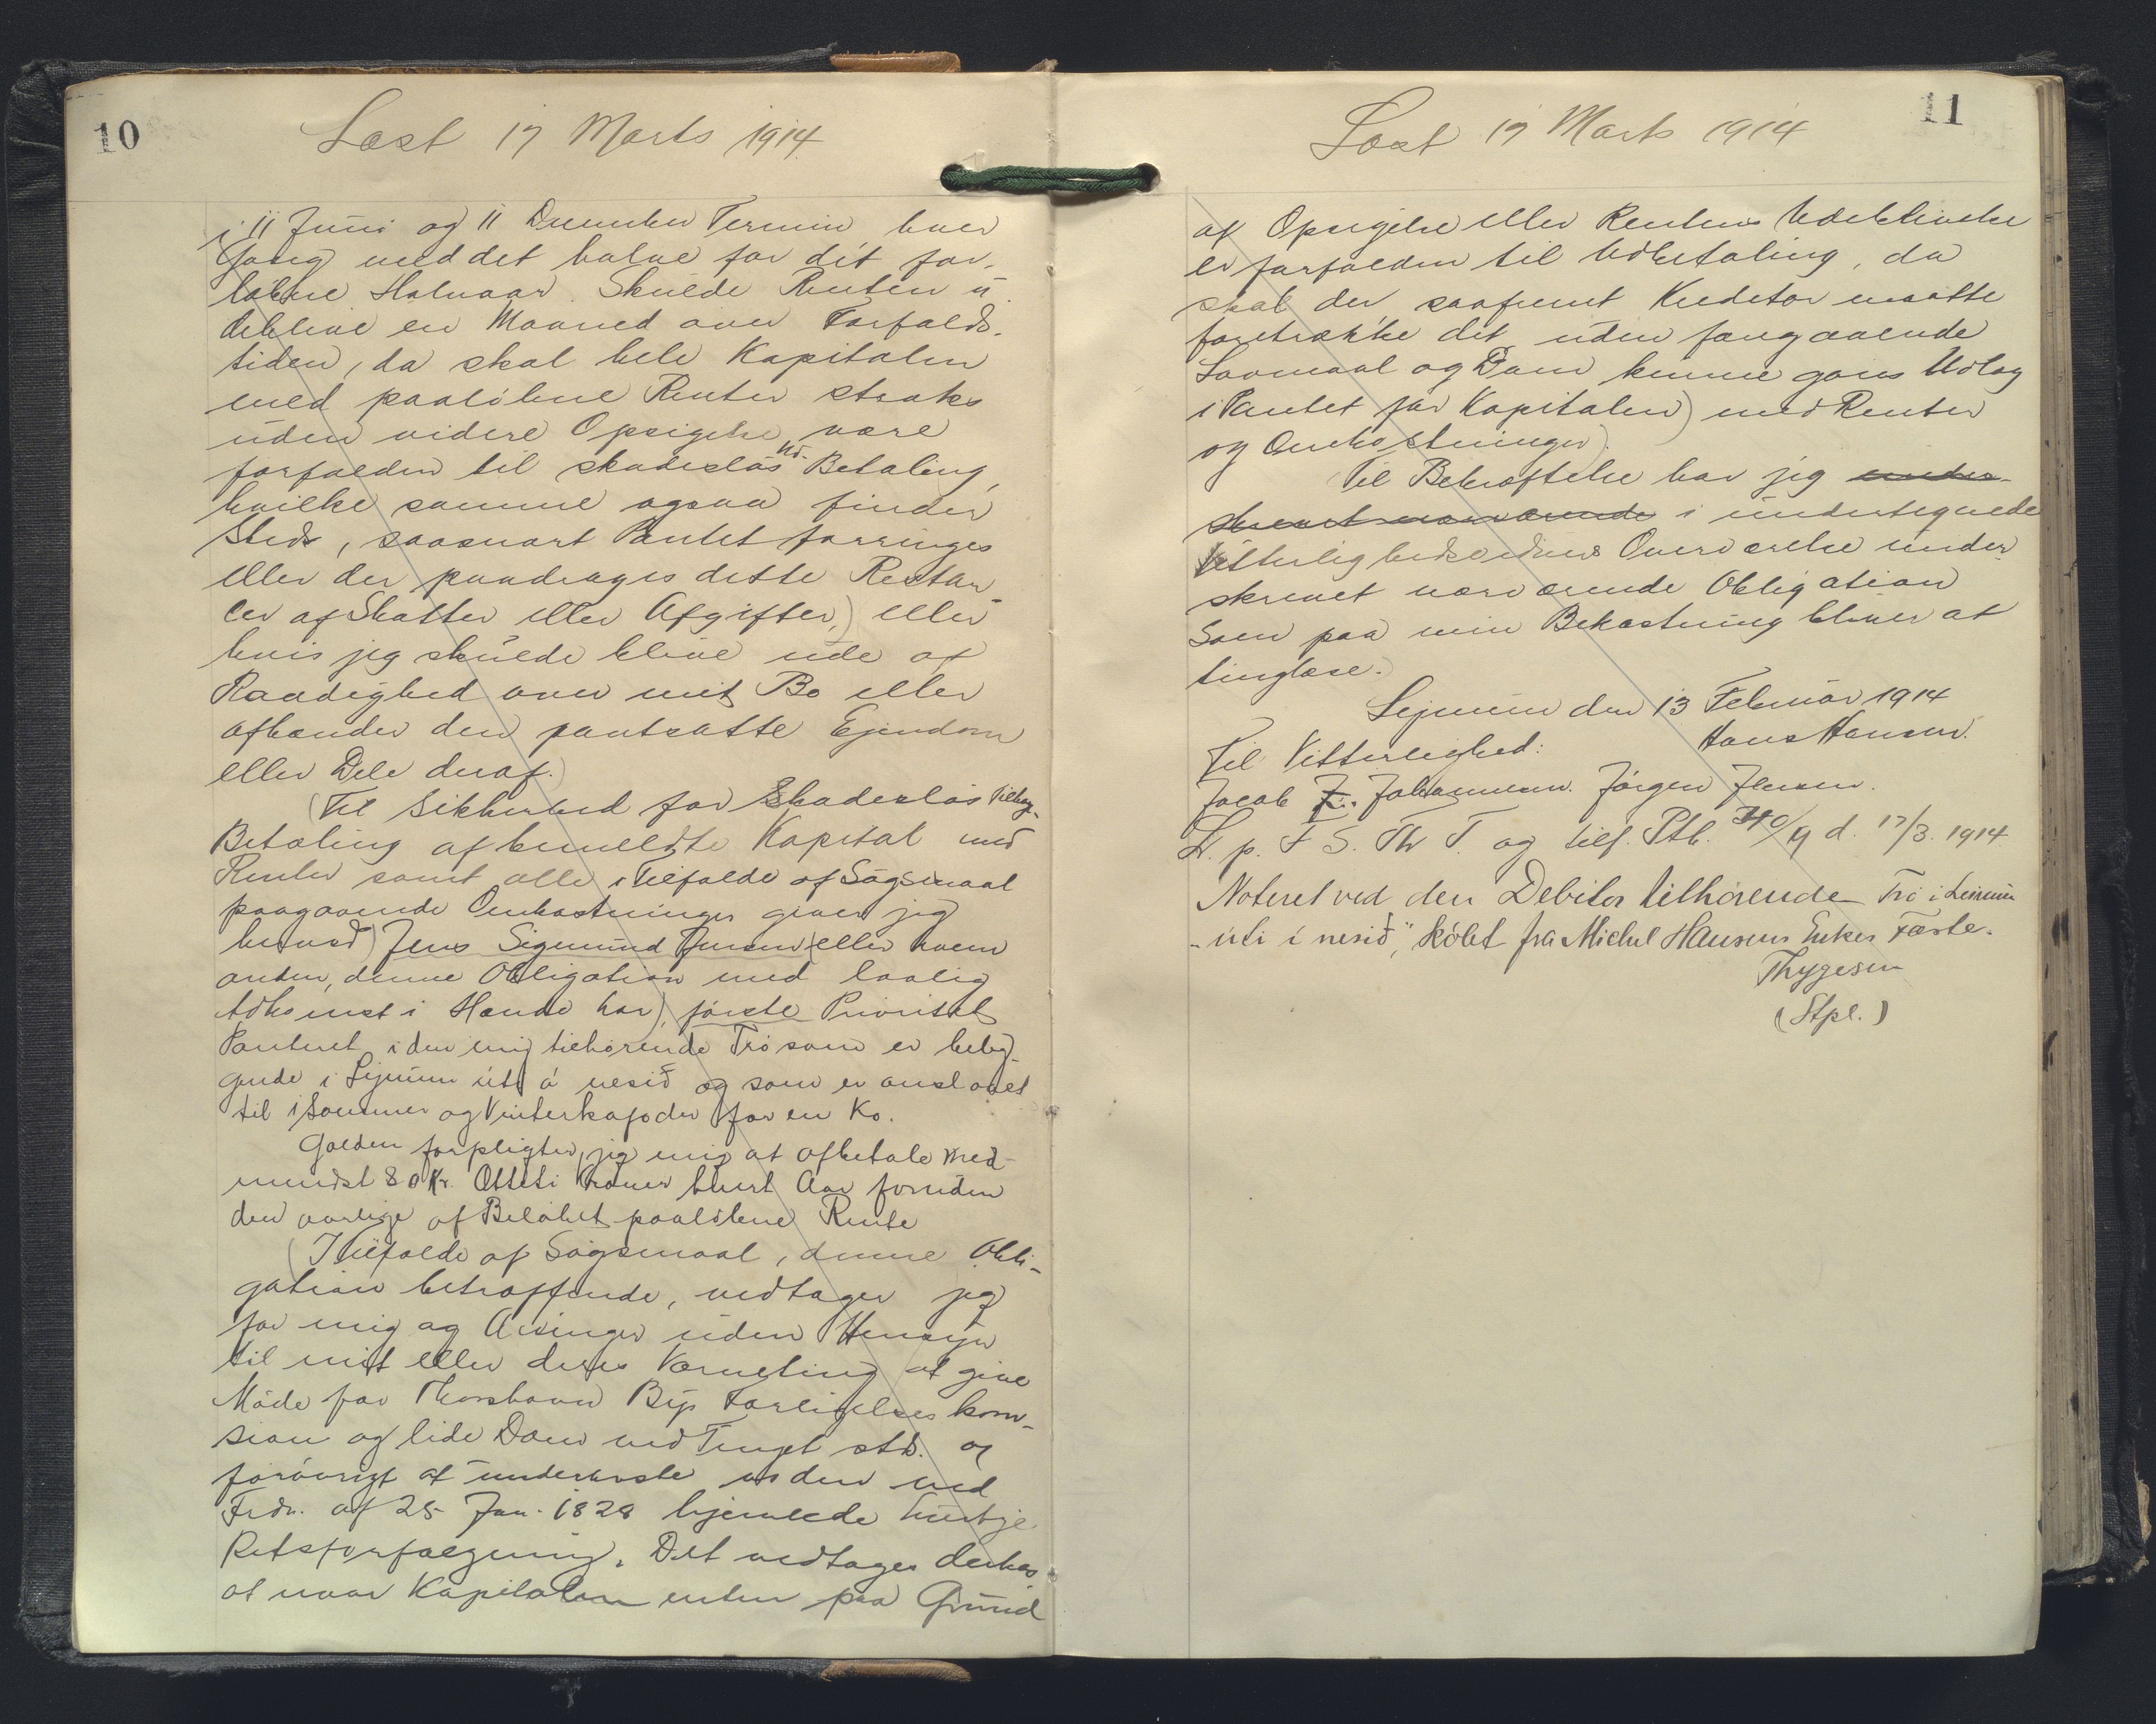 10
Læst 17 Marts 1914.
i 11 Juni og 11 December Termin hver
Gang med det halve for dét for-
løbne Halvaar. Skulde Renten u-
debleve en Maaned over Forfalds-
tiden, da skal hele Kapitalen
med paaløbne Renter straks
uden videre Opsigelse være
forfalden til skadesløs Ud- Betaling,
hvilke samme ogsaa finder
Sted, saasnart Pantet forringes
eller der paadrages dette Restan-
cer af Skatter eller Afgifter,) eller
hvis jeg skulde blive ude af
Raadighed over mit Bo eller
afhænder den pantsatte Ejendom
eller Dele deraf.)
(Til Sikkerhed for Skadesløs Tilbag-
Betaling af bemeldte Kapital med
Renter samt alle i Tilfælde af Søgsmaal
paagaaende Omkostninger giver jeg
herved) Jens Sigmund Jensen (eller hvem
anden, denne Obligation med lovlig
Adkomst i Hænde har), første Prioritet
Panteret i den mig tilhørende Trø som er belig-
gende i Lejnum úti á nesið og som er anslaaet
til i Sommer og Vinterkofoder for en Ko.
Gælden forpligter jeg mig at afbetale med
mindst 80 Kr. Otteti Kroner hvert Aar foruden
den aarlige af Beløbet paaløbne Rente
(I Tilfælde af Søgsmaal, denne Obli-
gation betræffende, vedtager jeg
for mig og Arvinger uden Hensyn
til mit eller deres Værneting at give
Møde for Thorshavn Bys Forligelses kom-
sion og lide Dom ved Tinget stds. og
forøvrigt at underkaste os den ved
Frdn. af 25 Jan. 1828 hjemlede hurtige
Retsforfølgning. Det vedtages derhos
at naar Kapitalen enten paa Grund
11
Læst 17 Marts 1914
af Opsigelse eller Rentens Udeblivelse
er forfalden til Udbetaling, da
skal der saafremt Kreditor maatte
foretrække det uden foregaaende
Lovmaal og Dom kunne gøres Udlæg
i Pantet for Kapitalen) med Renter
og Omkostninger).
(Til Bekræftelse har jeg under-
skrevet nærværende i undertegnede
Vitterlighedsvidners Overværelse under
skrevet nærværende Obligation
Som paa min Bekostning bliver at
tinglæse.)
Lejnum den 13 Februar 1914
Hans Hansen.
Til Vitterlighed:
Jacob J. Johannesen. Jørgen Jensen.
L. p. F S. Th T. og tilf. Ptb. 340/9 d. 17/3. 1914
Noteret ved den Debitor tilhørende Trö i Leinum
"úti í nesið," købt fra Michel Hansens Enkes Fæste.
Thygesen
(Stpl.)